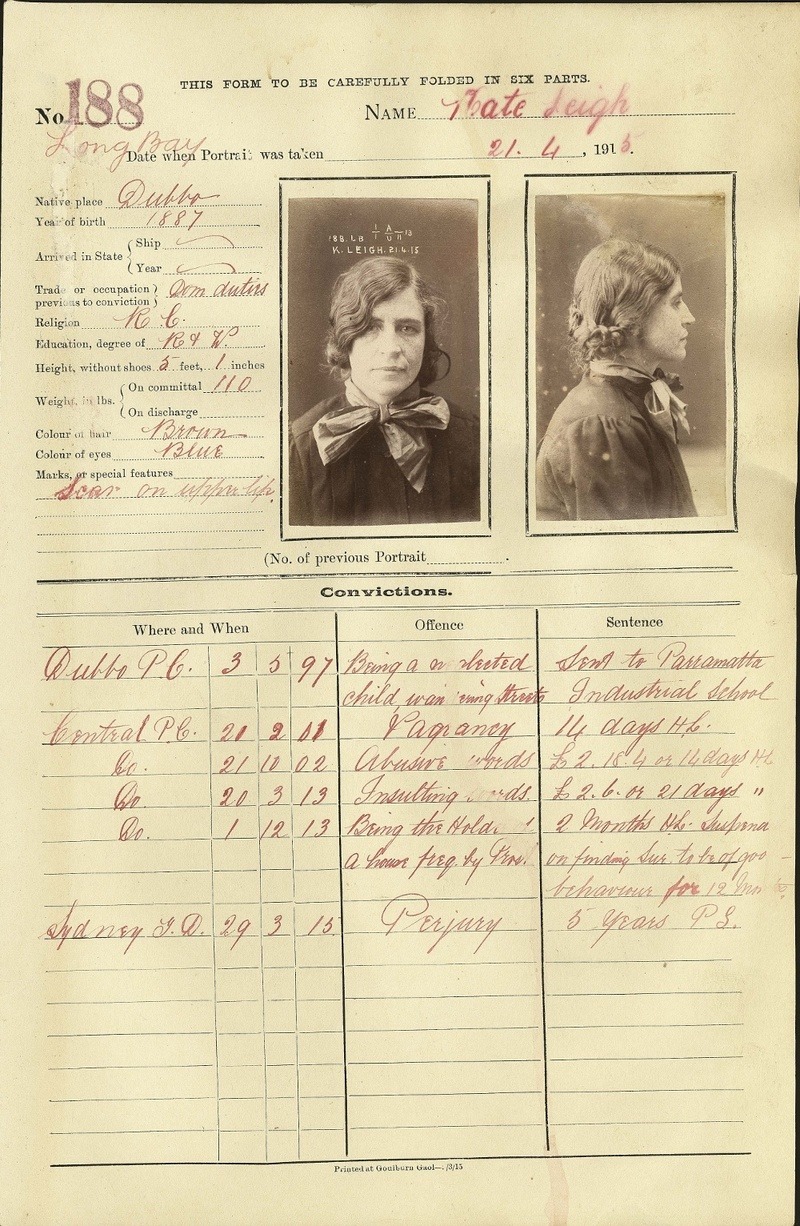 THIS FORM TO BE CAREFULLY FOLDED IN SIX PARTS.
No. 188
NAME Kate Leigh
Long Bay
Date when Portrait was taken 21. 4, 1915.
Native place Dubbo
Year of birth 1887
Arrived in State { Ship
Year
Trade or occupation previous to conviction } Dom duties
Religion R. C.
Education, degree of R & W.
Height, without shoes 5 feet, 1 inches
Weight, in lbs. { On committal 110
On discharge
Colour of hair Brown
Colour of eyes Blue
Marks, or special features
Scar on upper lip
188. LB 13
K. LEIGH. 21.4.15
(No. of previous Portrait
Convictions.
Where and When Offence Sentence
Dubbo P.C. 3 5 97 Being a n lected Sent to Parramatta
child wan ering streets Industrial School
Central P.C. 20 2 01 Vagrancy 14 days HL.
Do. 21 10 02 Abusive words £2. 18. 4 or 14 days HL
Do. 20 3 13 Insulting ds. £2. 6. or 21 days "
Do. 1 12 13 Being the Hold 2 Months HL. Suspend
a house freq. by Pros. on finding Sur. to be of goo
behaviour for 12 Mo
Sydney Q.D. 29 3 15 Perjury 5 Years P.S.
Printed at Goulburn Gaol—/3/15